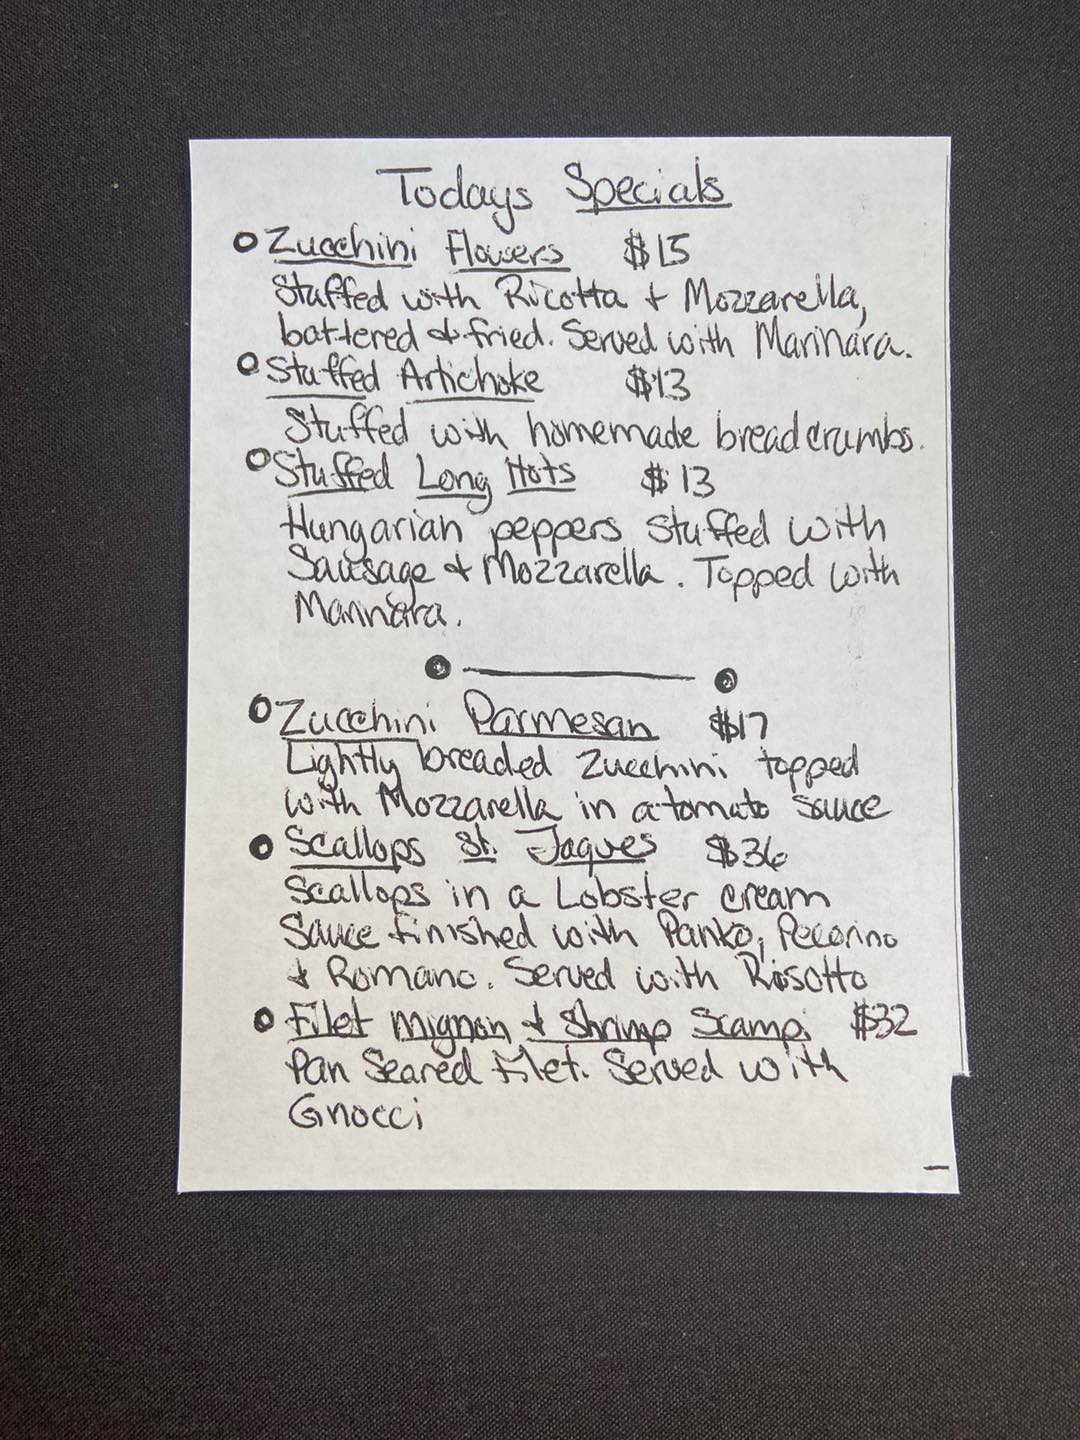 Todays Specials
Zucchini Flowers $15
Stuffed with Ricotta & Mozzarella,
battered & fried. Served with Marinara.
Stuffed Artichoke $13
Stuffed with homemade breadcrumbs.
Stuffed Long Hots $13
Hungarian peppers stuffed with
Sausage & Mozzarella. Topped with
Marinara.
Zucchini Parmesan $17
Lightly breaded zucchini topped
with Mozzarella in a tomato sauce
Scallops St. Jaques $36
Scallops in a Lobster cream
Sauce finished with Panko, Pecorino
& Romano. Served with Risotto
Filet Mignon & Shrimp Scampi $32
Pan Seared Filet. Served with
Gnocci